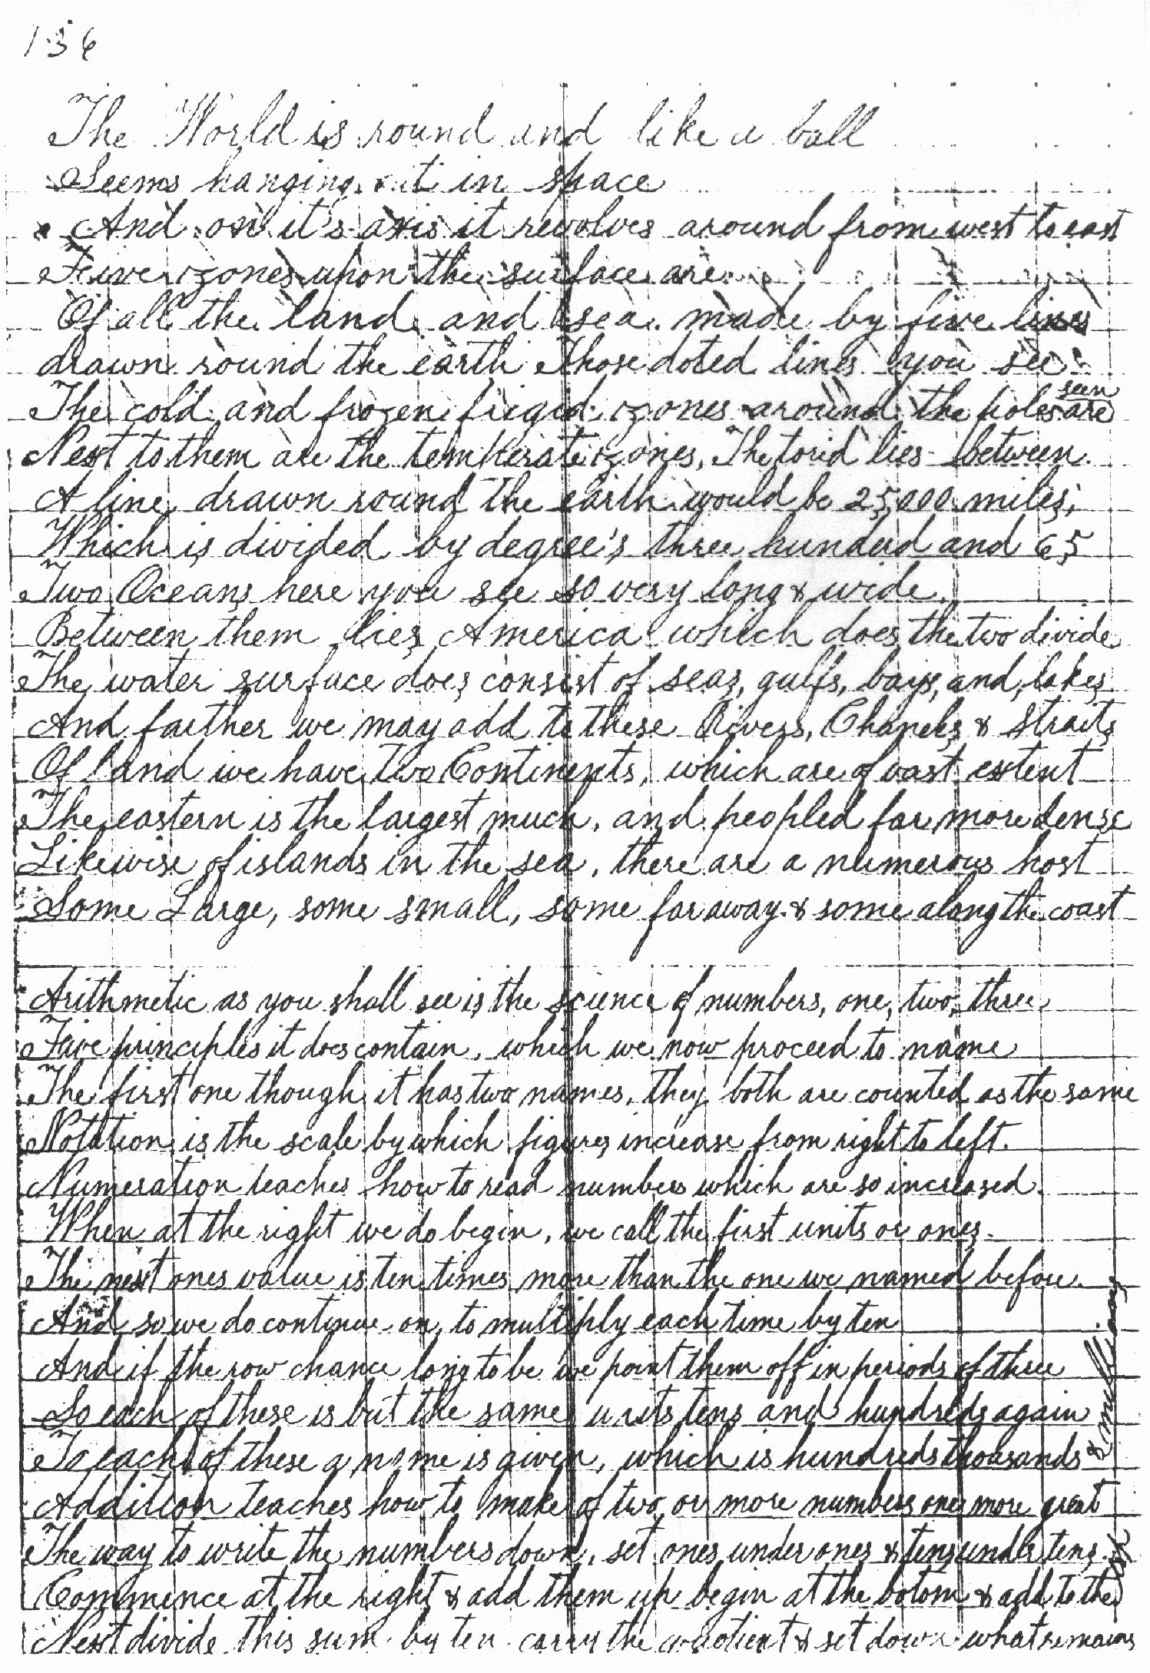 136
The World is round and like a ball
Seems hanging out in space
And on it's axis it revolves around from west to east
Five zones upon the surface are
Of all the land and sea made by five lines
drawn round the earth Those doted lines you see
The cold and frozen frigid zones around the poles are seen
Next to them are the temperate zones, The torid lies between
A line drawn round the earth would be 25,000 miles,
Which is divided by degree's three hunderd and 65
Two Oceans here you see so very long & wide.
Between them lies America which does the two divide
The water surface does consist of seas, gulfs, bays, and lakes
And farther we may add to these Rivers, Chanels & Straits
Of land we have Two Continents, which are of vast extent
The eastern is the largest much, and peopled far more dense
Likewise of islands in the sea, there are a numerous host
Some Large, some small, some far away & some along the coast
Arithmetic as you shall see is the science of numbers, one, two, three
Five principles it does contain, which we now proceed to name
The first one though it has two names, they both are counted as the same
Notation is the scale by which figures increase from right to left.
Numeration teaches how to read numbers which are so increased.
When at the right we do begin, we call the first units or ones.
The next ones value is ten times more than the one we named before.
And so we do continue on, to multiply each time by ten
And if the row chance long to be we point them off in periods of three
So each of these is but the same units tens and hundreds again
To each of these a name is given, which is hundreds thousands & millions
Addition teaches how to make of two or more numbers one more great
The way to write the numbers down, set ones under ones & tens under tens.
Commence at the right & add them up begin at the botom & add to the top
Next divide this sum by ten carry the quotient & set down what remains